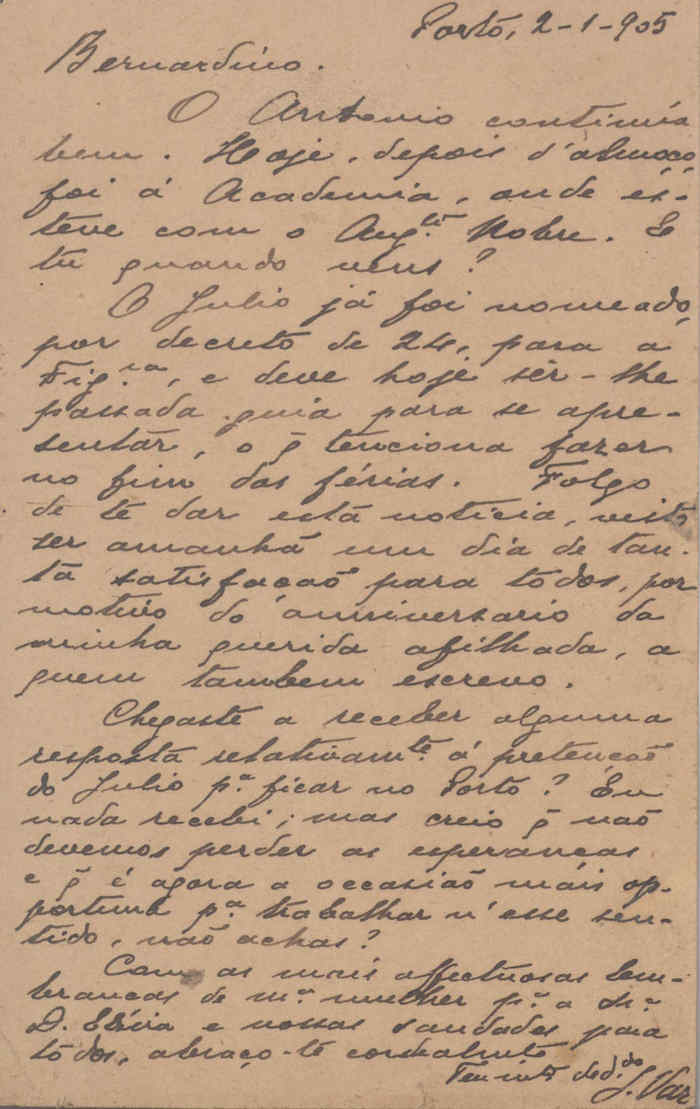 Porto, 2-1-905
Bernardino.
O Antonio continúa
bem. Hoje, depois d'almoço,
foi á Academia, onde es-
teve com o Aug.to Nobre. E
tu quando vens?
O Julio já foi nomeado,
por decreto de 24, para a
Fig.ra, e deve hoje sêr-lhe
passada guia para se apre-
sentar, o q̃ tenciona fazer
no fim das férias. Folgo
de te dar esta noticia, visto
ser amanhã um dia de tan-
ta satisfação para todos, por
motivo do anniversario da
minha querida afilhada, a
quem tambem escrevo.
Chegaste a receber alguma
resposta relativam.te á pretenção
do Julio p.a ficar no Porto? Eu
nada recebi; mas creio q̃ não
devemos perder as esperanças
e q̃ é agora a occasião mais op-
portuna p.a trabalhar n'esse sen-
tido, não achas?
Com as mais affectuosas lem-
branças de m.a mulher p.a a Sr.a
D. Elzira e nossas saudades para
todos, abraço-te cordealmte
Teu mto ded.do
J. Vaz